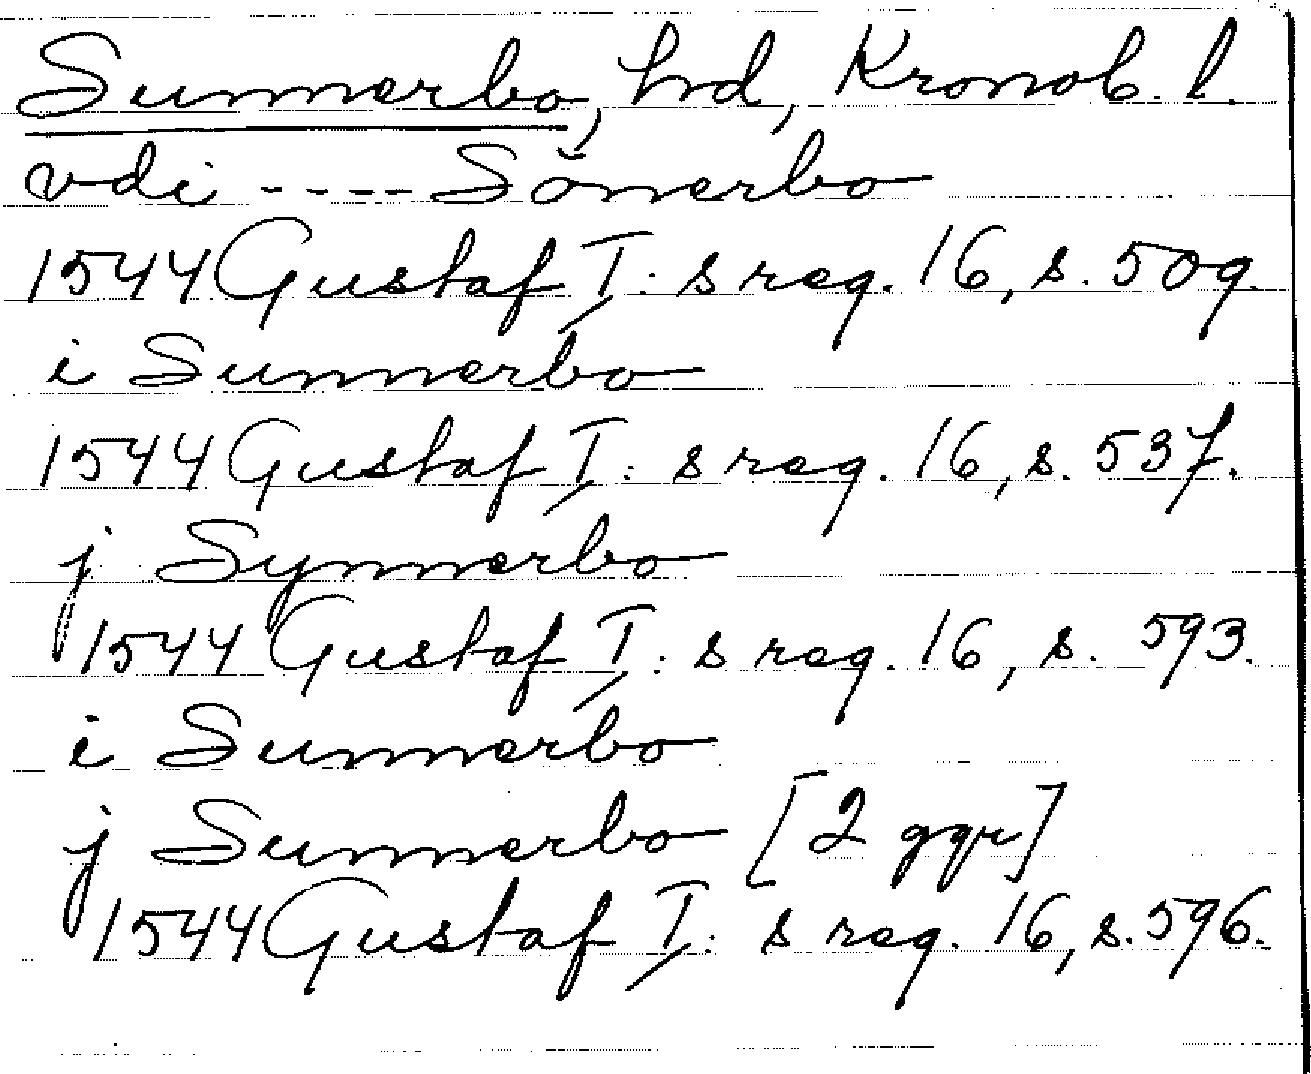 Sunnerbo, hd, Kronob. l.
vdi ---- Sŏnerbo
1544 Gustaf I: s reg. 16, s. 509.
i Sunnerbo
1544 Gustaf I: s reg. 16, s. 537.
j Synnerbo
1544 Gustaf I: s reg. 16, s. 593.
i Sunnerbo
j Sunnerbo [2 ggr]
1544 Gustaf I: s reg. 16, s. 596.